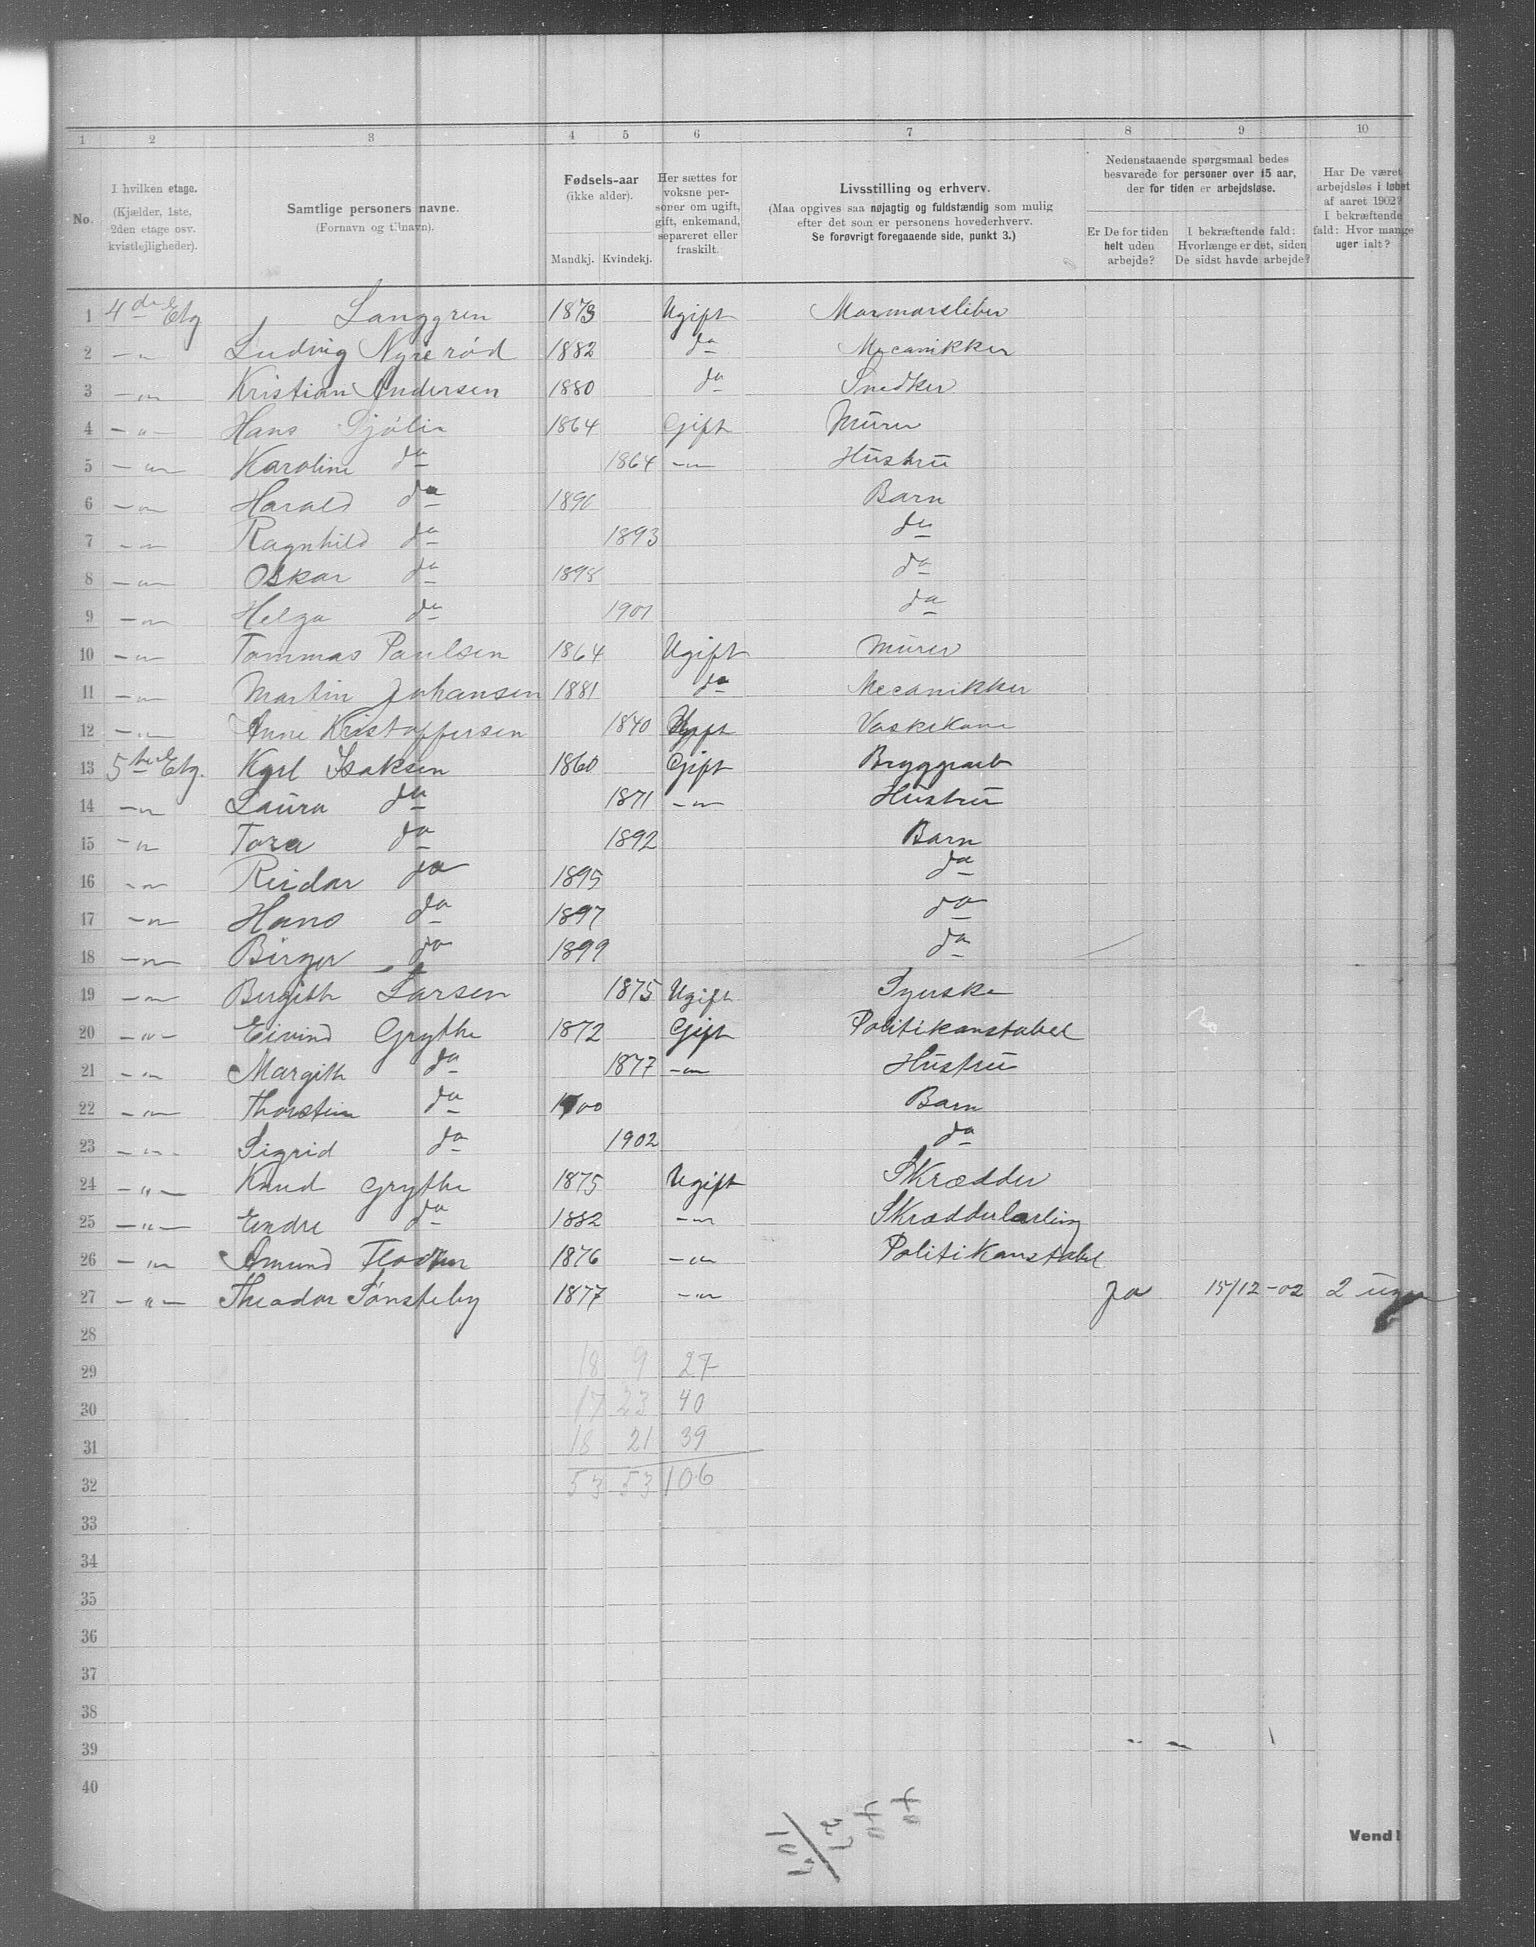 1 2 3 4 5 6 7 8 9 10
No.
I hvilken etage.
(Kjælder, 1ste,
2den etage osv.
kvistlejligheder).
Samtlige personers navne.
(Fornavn og tilnavn).
Fødsels-aar
(ikke alder).
Mandkj. Kvindekj.
Her sættes for
voksne per-
soner om ugift,
gift, enkemand,
separeret eller
fraskilt.
Livsstilling og erhverv.
(Maa opgives saa nøjagtig og fuldstændig som mulig
efter det som er personens hovederhverv.
Se forøvrigt foregaaende side, punkt 3.)
Nedenstaaende spørgsmaal bedes
besvarede for personer over 15 aar,
der for tiden er arbejdsløse.
Er De for tiden
helt uden
arbejde?
I bekræftende fald:
Hvorlænge er det, siden
De sidst havde arbejde?
Har De været
arbejdsløs i løbet
af aaret 1902?
I bekræftende
fald: Hvor mange
uger ialt?
1 4de Etg Langgren 1873 Ugift Marmorsliber
2 —"— Ludvig Nyrerød 1882 do Mecanikker
3 —"— Kristian Andersen 1880 do Snedker
4 —"— Hans Sjølin 1864 Gift Murer
5 —"— Karoline do 1864 —"— Hustru
6 —"— Harald do 1890 Barn
7 —"— Ragnhild do 1893 do
8 —"— Oskar do 1898 do
9 —"— Helga do 1901 do
10 —"— Tommas Paulsen 1864 Ugift Murer
11 —"— Martin Johansen 1881 do Mecanikker
12 —"— Anne Kristoffersen 1840 Ugift Vaskekone
13 5te Etg. Karl Isaksen 1860 Gift Bryggearb
14 —"— Laura do 1871 —"— Hustru
15 —"— Tora do 1892 Barn
16 —"— Reidar do 1895 do
17 —"— Hans do 1897 do
18 —"— Birger do 1899 do
19 —"— Birgith Larsen 1875 Ugift Syerske
20 —"— Eivind Grythe 1872 Gift Politikonstabel
21 —"— Margith do 1877 —"— Hustru
22 —"— Thorstein do 1900 Barn
23 —"— Sigrid do 1902 do
24 —"— Knud Grythe 1875 Ugift Skrædder
25 —"— Endre do 1882 —"— Skrædderlærling
26 —"— Amund 1876 —"— Politikonstabel
27 —"— Theodor Sønsteby 1877 —"— Ja 15/12-02 2 uger
28
29 18 9 27
30 17 23 40
31 18 21 39
32 53 53 106
33
34
35
36
37
38
39
40
40
40
27
107
Vend!